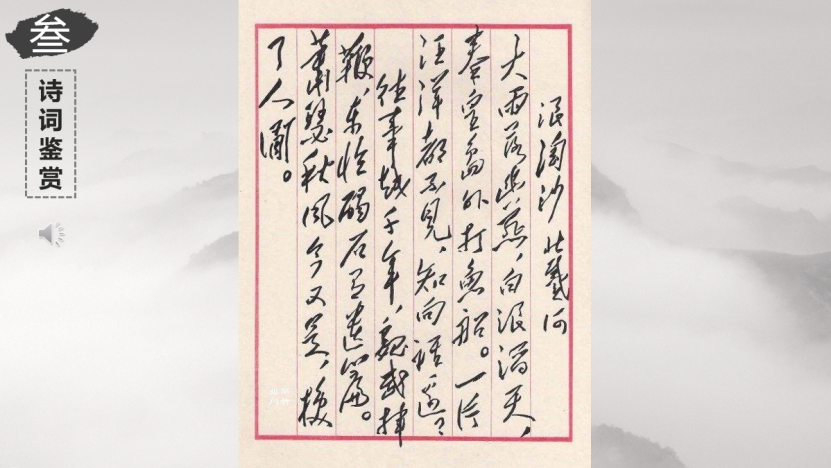 叁
诗词鉴赏
浪淘沙 北戴河
大雨落幽燕，白浪滔天，
秦皇島外打魚船。一片
汪洋都不見，知向誰邊？
往事越千年，魏武挥
鞭，东临碣石有遺篇。
蕭瑟秋風今又是，換
了人間。